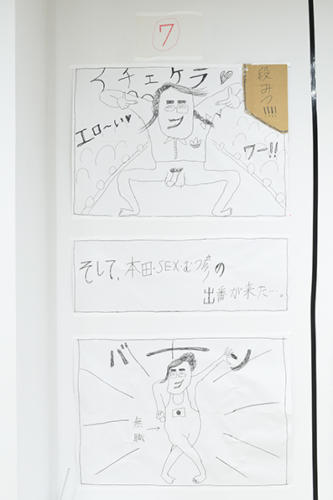 7
イチェケラ♥
段みつ!!!!
エロ〜い♥
ワー!!
そして、本田・SEX・むつ彦の
出番が来た…。
バーン
無職